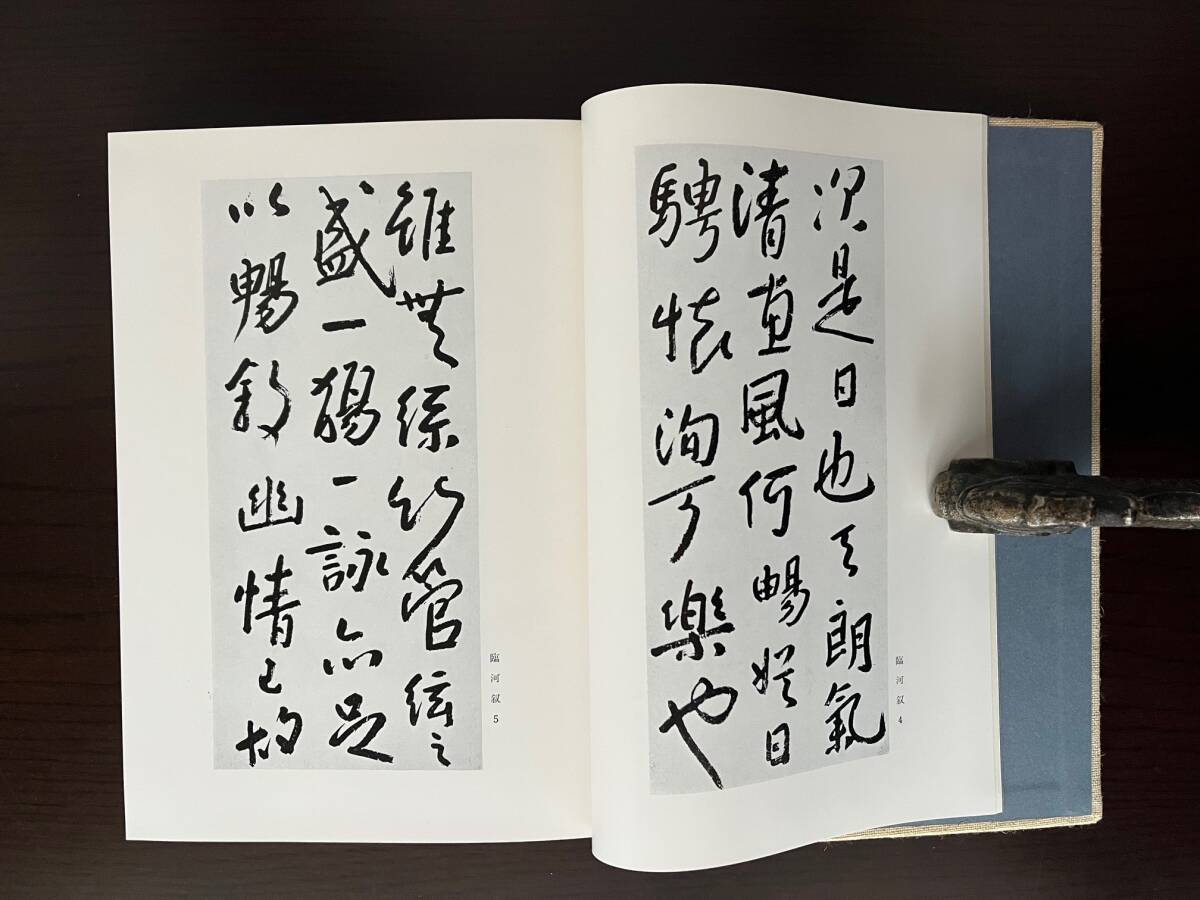 次是日也天朗氣
清惠風和暢娛目
騁懷洵可樂也
臨河叙 4
雖無絲竹管絃之
盛一觴一詠亦足
以暢敘幽情已故
臨河叙 5